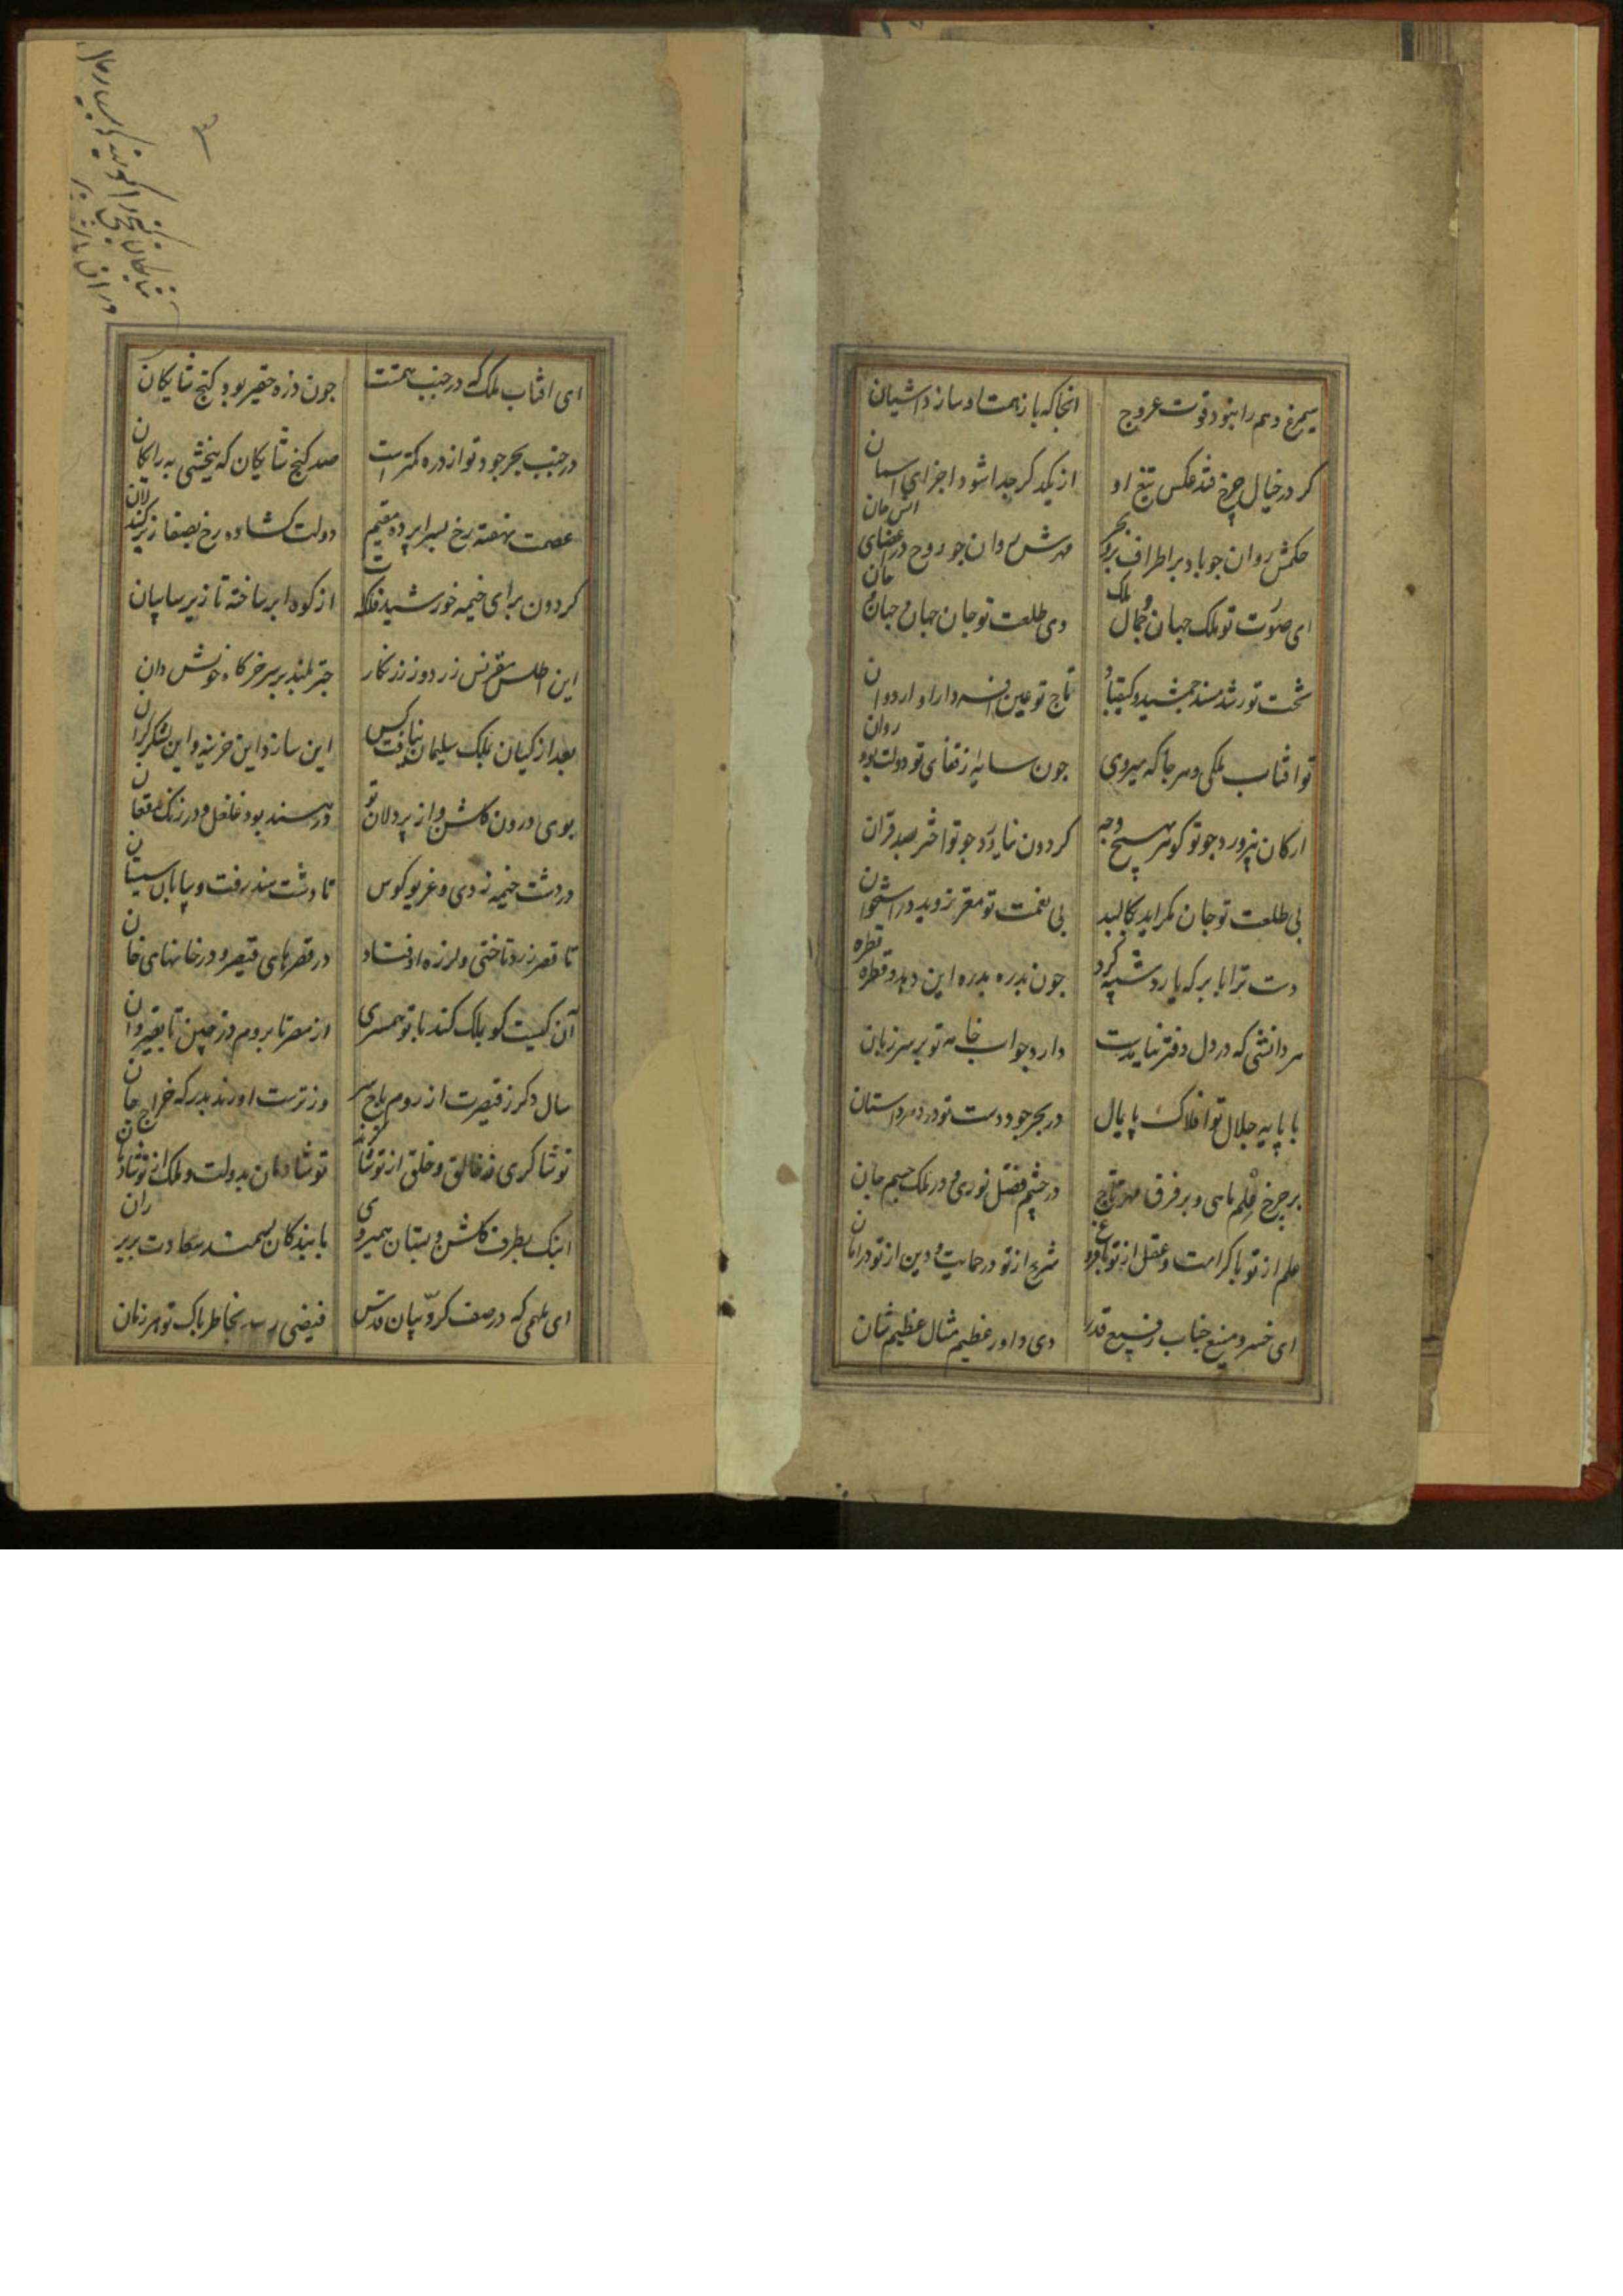 سیمرغ وهم را نبود قوت عروج
انجا که باز همت او سازد اشیان
کر در خیال چرخ فتد عکس تیغ او
از یکدکر جدا شود اجزای اسمان
حکمش روان جو باد بر اطراف بحر و بر
مهرش روان جو روح در اعضای انس و جان
ای صورت تو ملک جهان و جمال ملک
وی طلعت تو جان جهان و جهان جان
تخت تو رشک مسند جمشید و کیقباد
تاج تو عین افسر دارا و اردوان
تو افتاب ملکی و هر جا که میروی
جون سایه از قفای تو دولت بود روان
ارکان نپرورد جو تو کوهر بهیچ وجه
کردون نیاورد جو تو اختر بصد قران
بی طلعت تو جان نکراید بکالبد
بی نعمت تو مغز نروید در استخوان
دست ترا بابر که یارد شبیه کرد
جون بدره بدره این دهد و قطره قطره
هر دانشی که در دل دفتر نیامدست
دارد جواب خامه تو بر سر زبان
با پایه جلال تو افلاک پایمال
در بحر جود دست تو در دهر داستان
بر چرخ علم ماهی و بر فرق مهر تاج
در چشم فضل نوری و در ملک جسم جان
علم از تو با کرامت و عقل از تو با فروغ
شرع از تو در حمایت و دین از تو در امان
ای خسرو منیع جناب رفیع قدر
وی داور عظیم مثال عظیم شان
ای افتاب ملک که در جنب همتت
جون ذره حقیر بود کنج شایکان
در جنب بحر جود تو از ذره کمترست
صد کنج شایکان که ببخشی به رایکان
عصمت نهفته رخ بسراپرده مقیم
دولت کشاده رخ بصفا زیر کندلان
کردون برای خیمه خورشید فلکه ات
از کوه ابر ساخته تا زیر سایبان
این اطلس مقرنس زردوز زرنکار
چتر بلند بر سر خرکاه خویش دان
بعد از کیان بملک سلیمان نیافت کس
این ساز و این خزینه و این لشکر کران
بوی درون کلشن و از پردلان تو
در هند بود غلغل و در زنک فغان
در دشت خیمه زدی و غریو کوس
تا دشت هند رفت و بیابان سیستان
تا قصر زرد تاختی و لرزه اوفتاد
در قصرهای قیصر و در خانهای خان
آن کیست کو بملک کند با تو همسری
از مصر تا بروم و ز چین تا بقیروان
سال دکر ز قیصرت از روم باج سر
وز ترست اورند بدرکه خراج خان
تو شاکری ز خالق و خلق از تو شاکرند
تو شادمان بدولت و ملک از تو شادمان
اینک بطرف کلشن و بستان همیروی
با بندکان سمند سعادت بزیر ران
ای ملهمی که در صف کروبیان قدس
فیضی رسد بخاطر پاک تو هر زمان